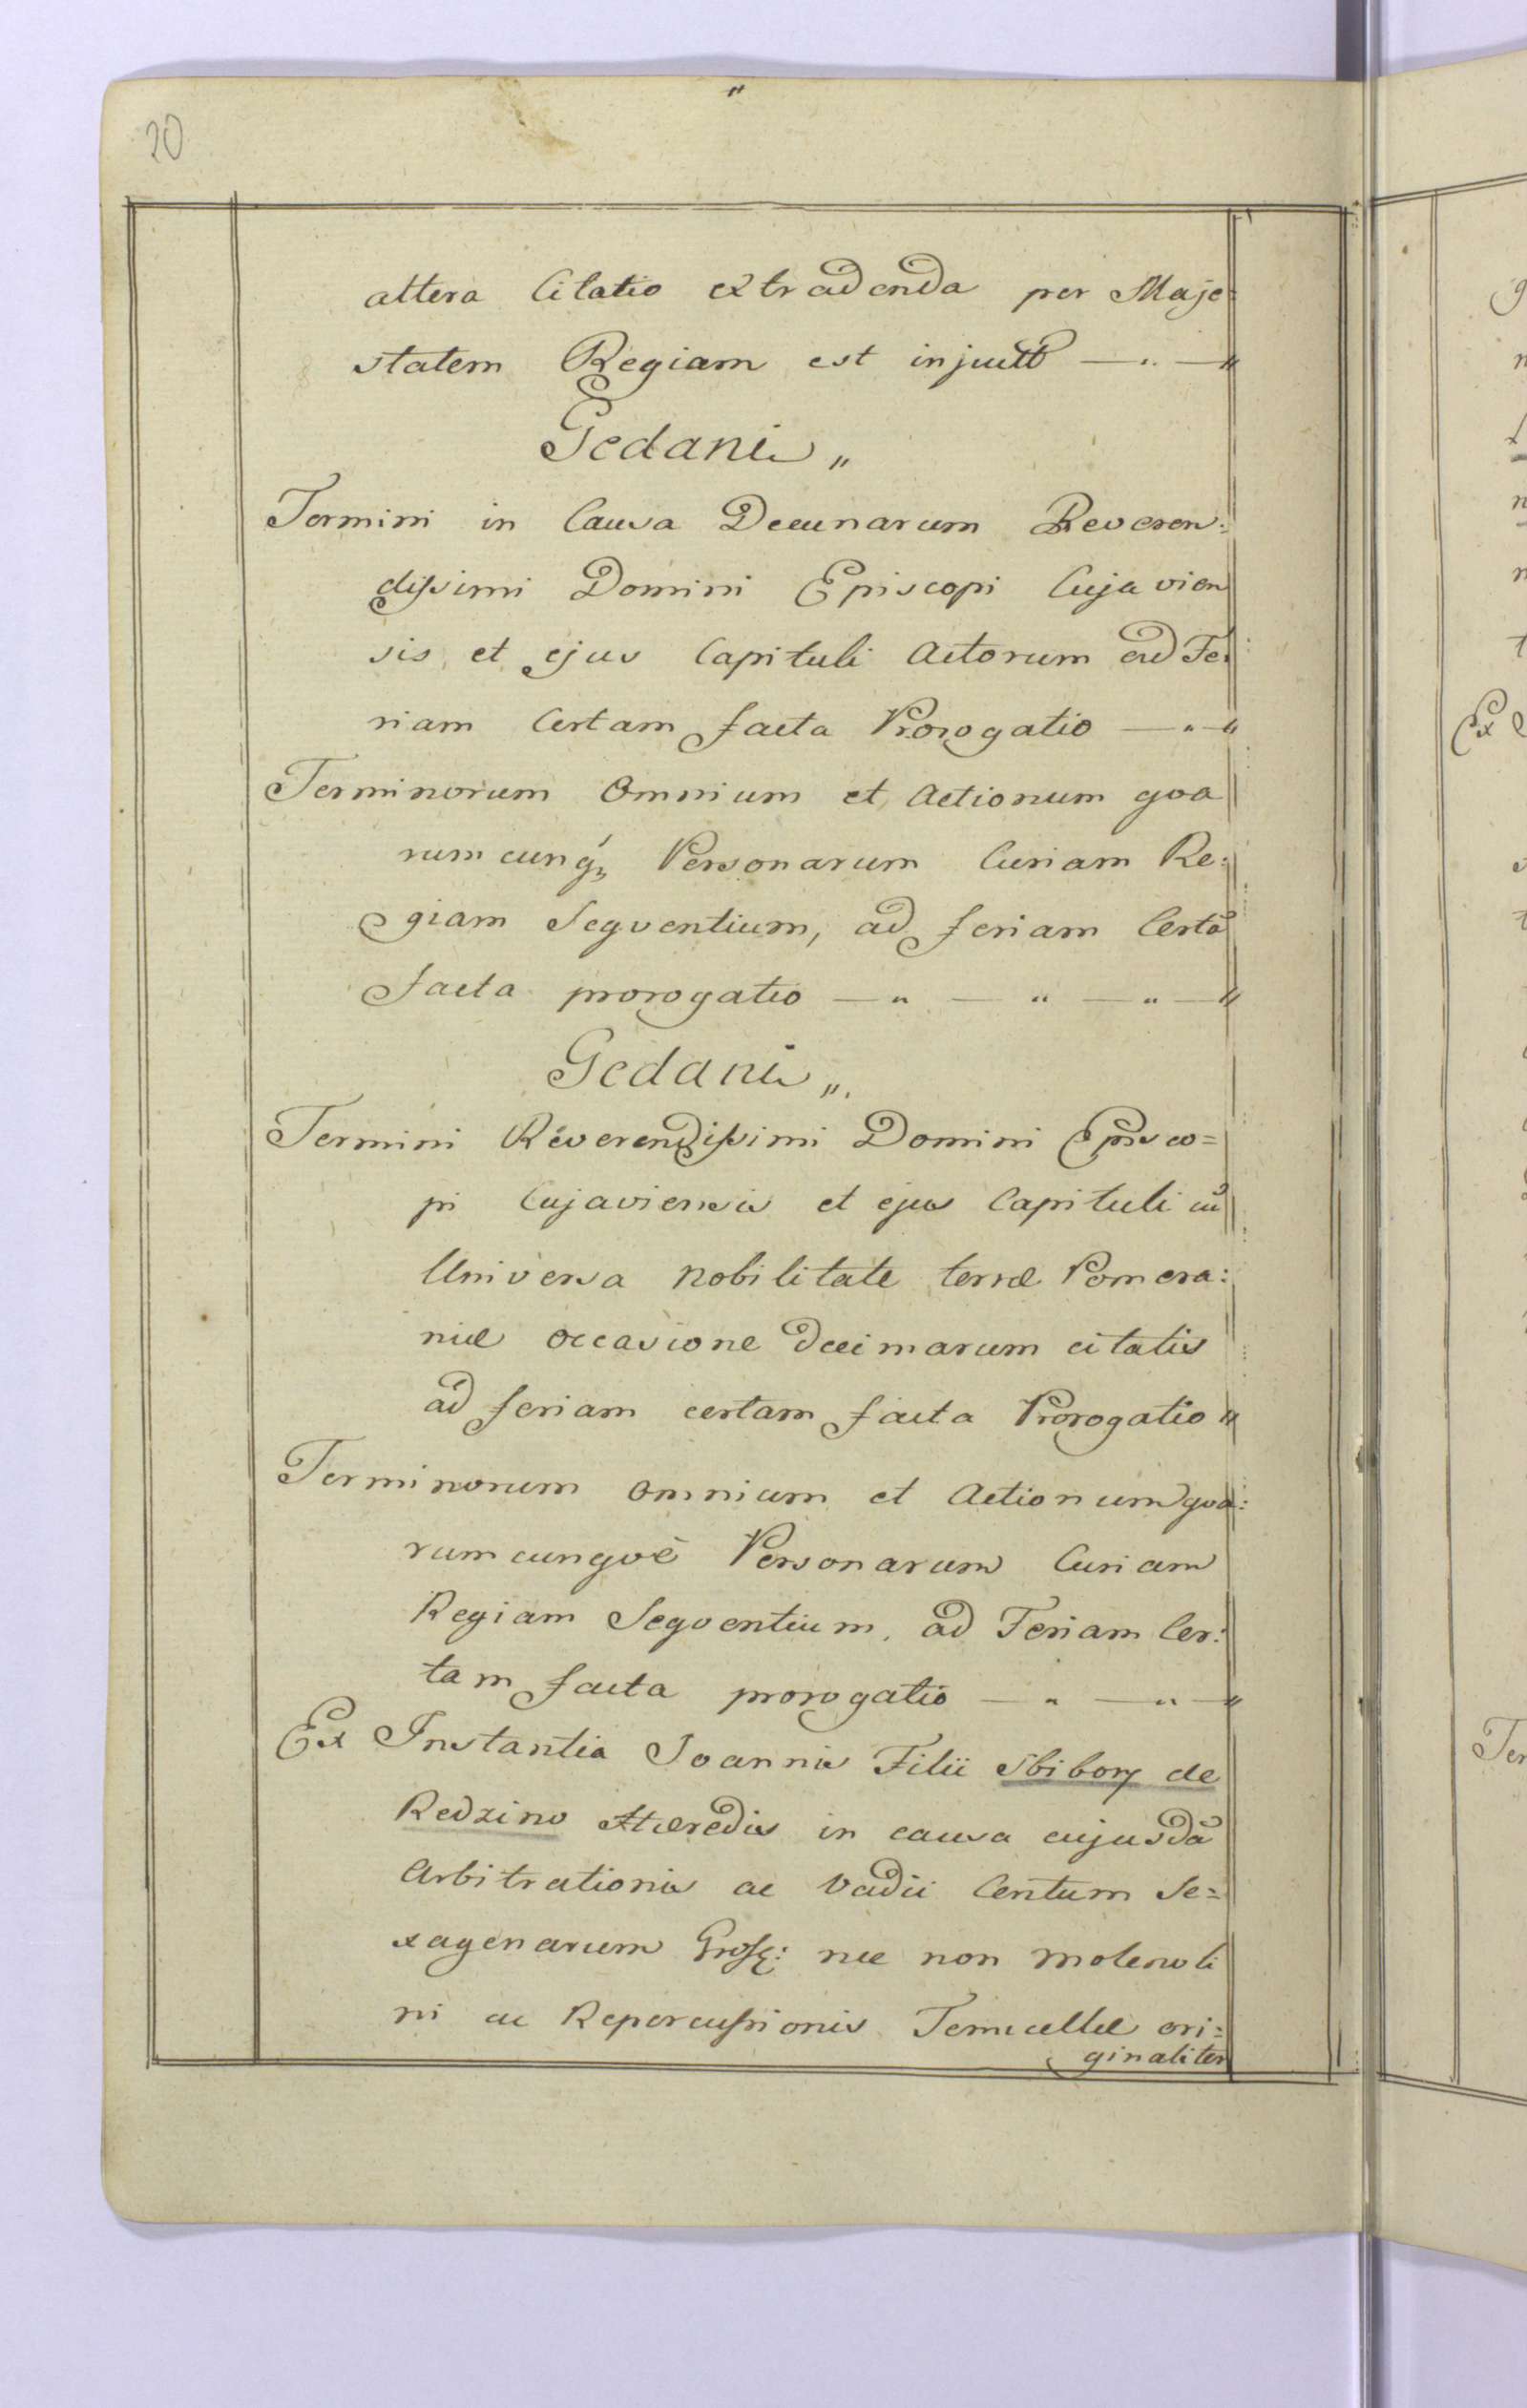 20
altera Citatio extradenda per Maje=
statem Regiam est injuctb — " — "
Gedani „
Termini in Causa Decimarum Reveren:
dissimi Domini Episcopi Cujavien
sis et ejus Capituli Actorum ad Fe:
riam Certam facta Prorogatio — " — "
Terminorum Omnium et Actionum qva
rumcunq́, Personarum Curiam Re:
giam Seqventium, ad feriam Certã
facta prorogatio — " — " — " — "
Gedani „.
Termini Reverendissimi Domini Episco=
pi Cujaviensis et ejus Capituli cũ
Universa Nobilitate terræ Pomera:
niæ occasione Decimarum citatis
ad feriam certam facta Prorogatio "
Terminorum omnium et Actionum qva:
rumcunqve Personarum Curiam
Regiam Seqventium, ad Feriam Cer:
tam facta prorogatio — " — " — "
Ex Instantia Joannis Filii Sbibory de
Redzino Hæredis in causa cujusdã
Arbitrationis ac Vadii Centum Se=
xagenarum Gross: nec non molendi
ni ac Repercussionis ori:
ginaliter